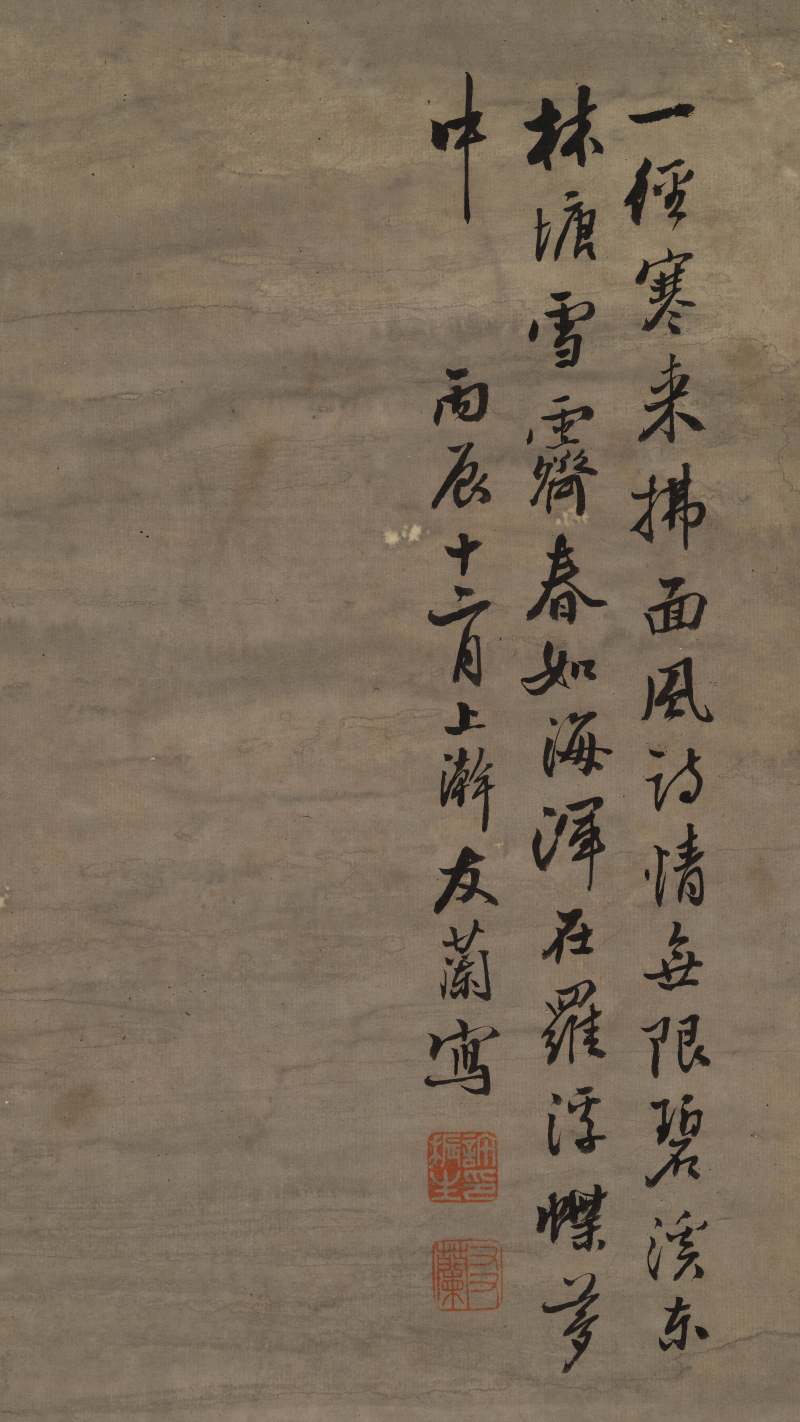 一徑寒来拂面風詩情無限碧溪东
林塘雪霽春如海渾在羅浮蝶夢
中
丙辰十二月上澣友蘭寫
友蘭